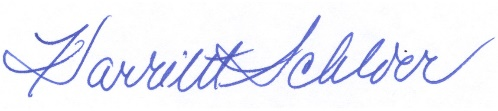 Harriett Schloer